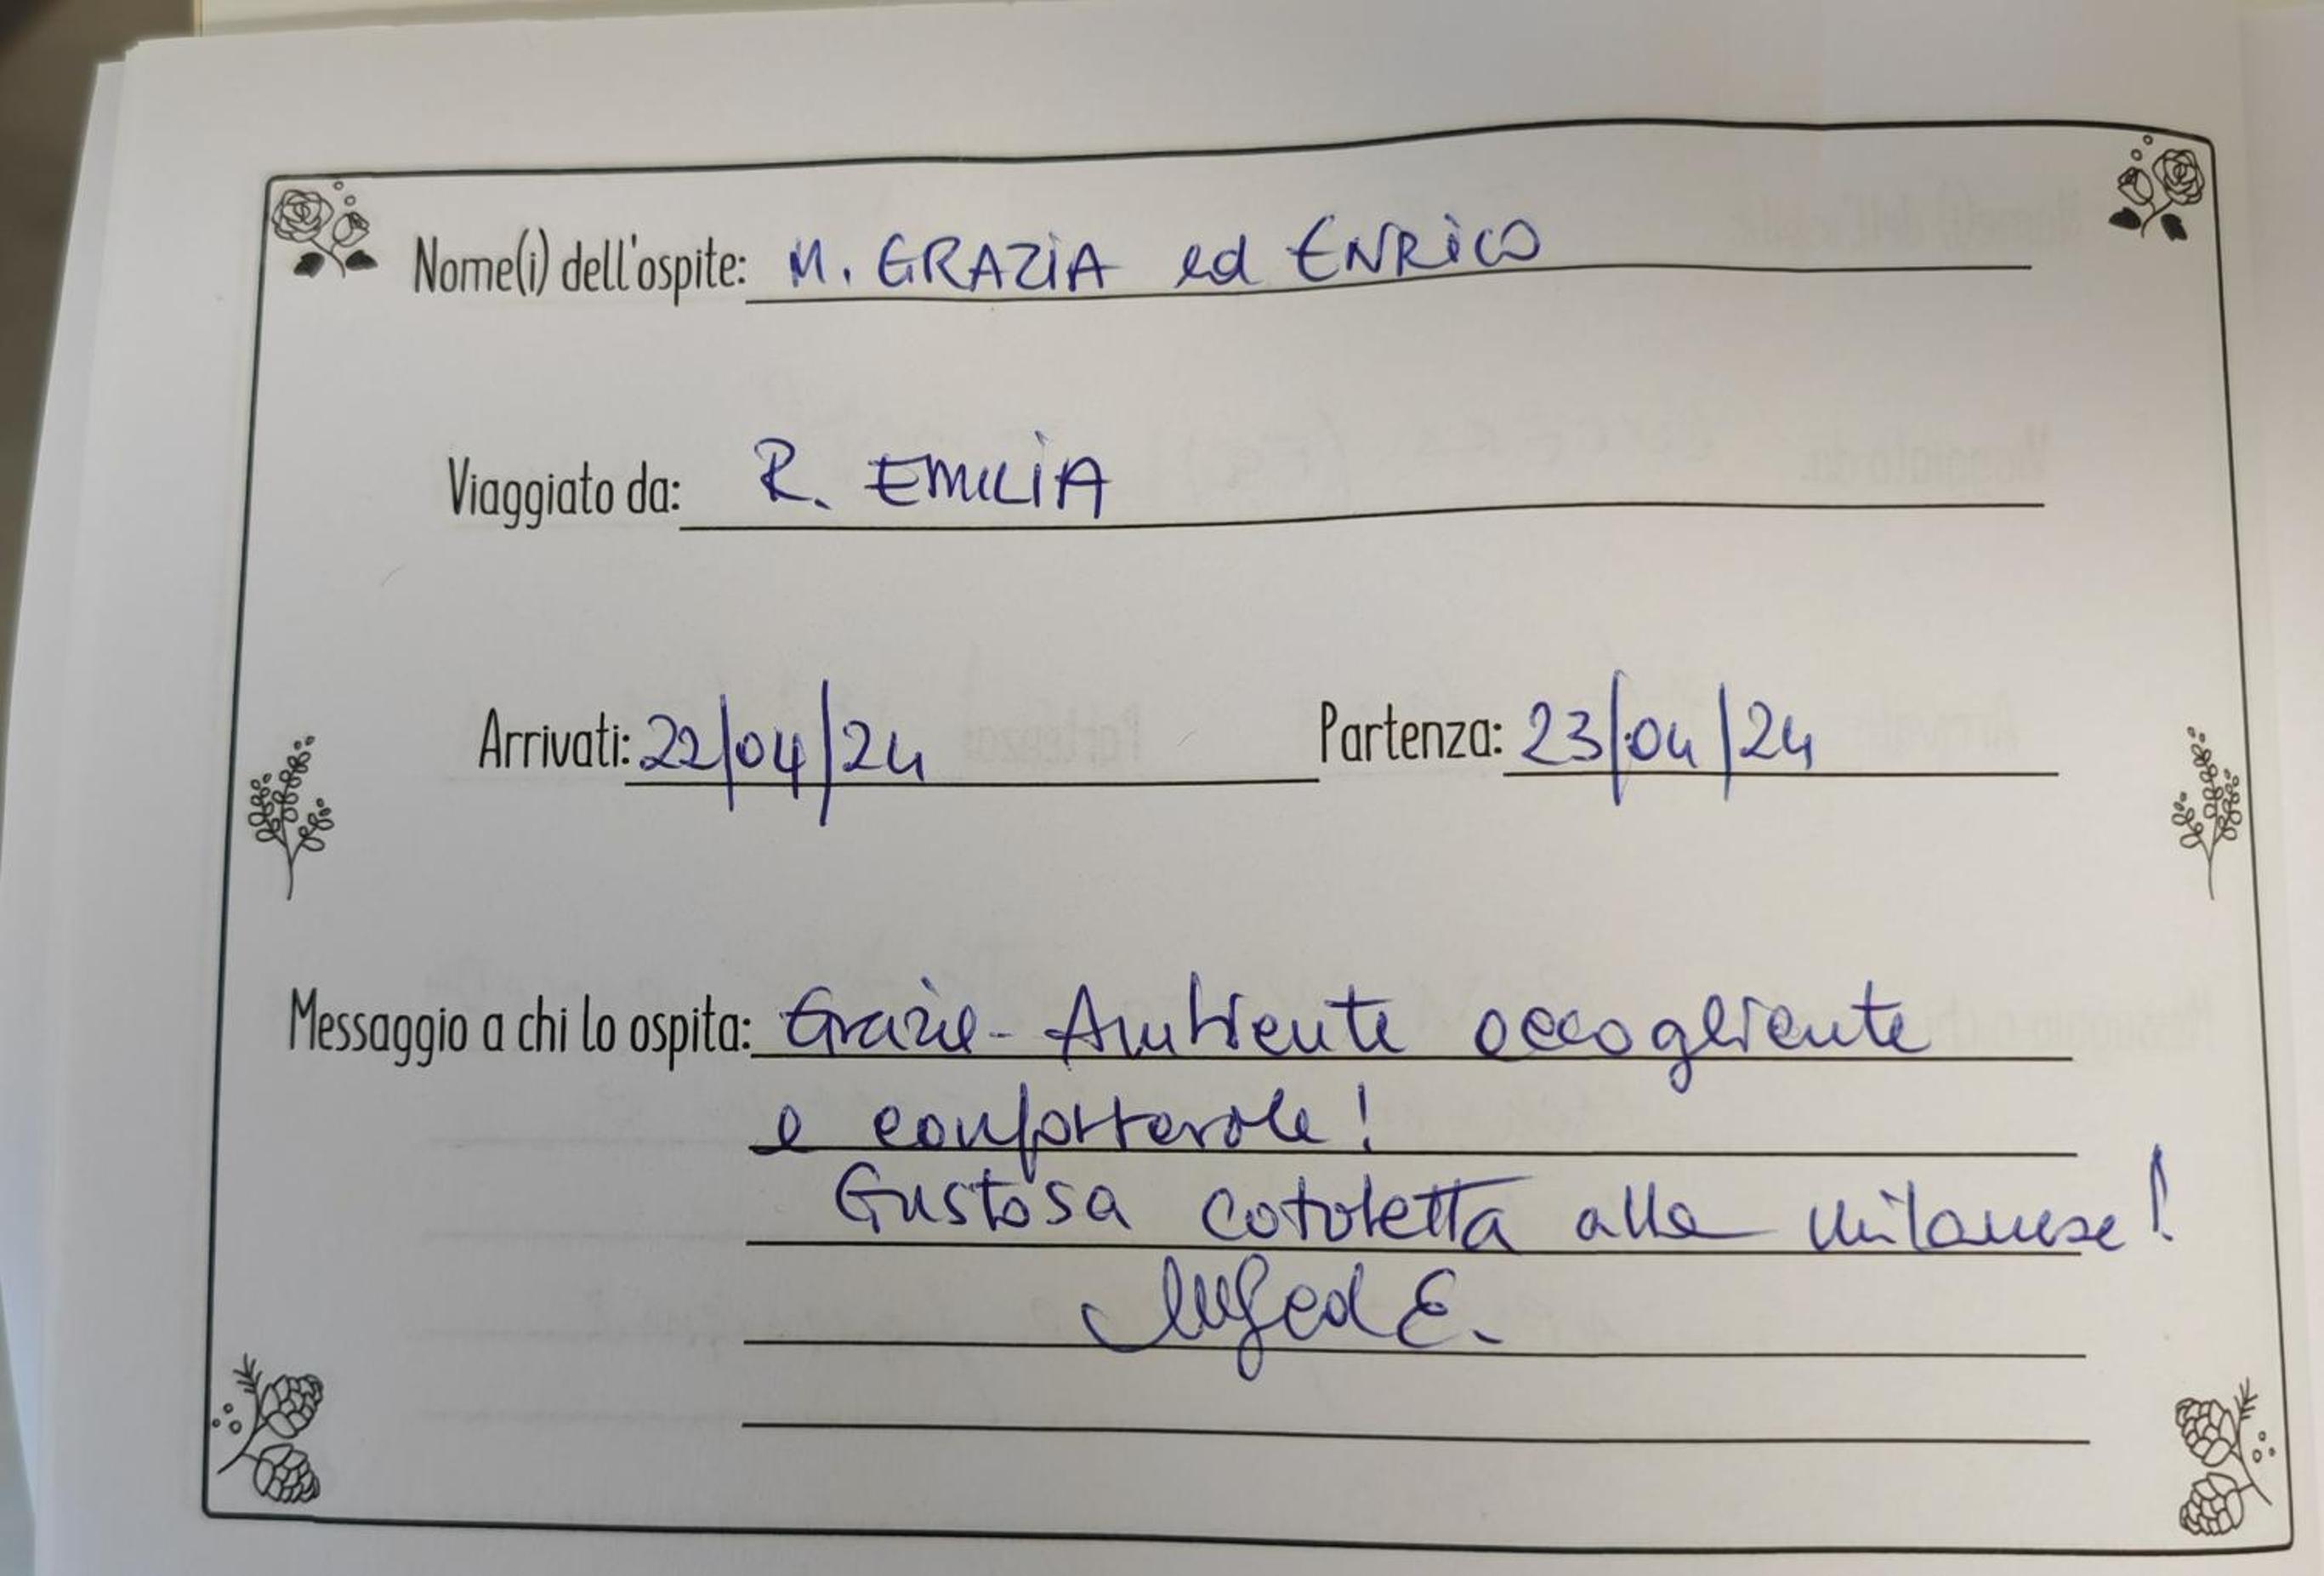 Nome(i) dell'ospite: M. GRAZIA ed ENRICO
Viaggiato da: R. EMILIA
Arrivati: 22/04/24 Partenza: 23/04/24
Messaggio a chi lo ospita: Grazie - Ambiente accogliente
e confortevole!
Gustosa cotoletta alla milanese!
ed E.